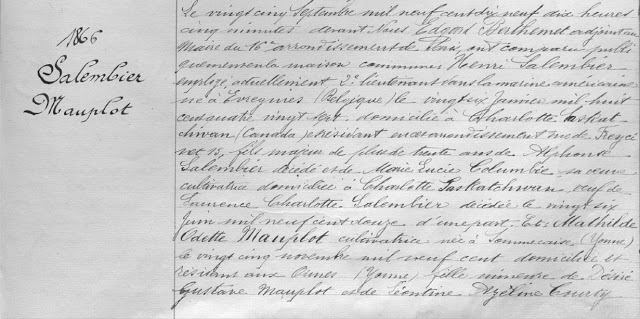 1866
Salembier
Mauplot
Le vingt cinq Septembre mil neuf cent dix neuf dix heures
cinq minutes devant Nous Edgard Berthemet adjoint au
Maire du 16e arrondissement de Paris, ont comparu publi
quement en la maison commune Henri Salembier
employé, actuellement 2e lieutenant dans la marine américaine
né à (Belgique) le vingt six Janvier mil huit
cent quatre vingt sept domicilié à Charlotte Saskat-
chwan (Canada) résidant en cet arrondissement rue de Freyci
net 15, fils majeur de plus de trente ans de Alphonse
Salembier décédé et de Marie Lucie Columbie, sa veuve
cultivatrice domiciliée à Charlotte Saskatchwan, veuf de
Laurence Charlotte Salembier décédée le vingt six
Juin mil neuf cent douze d'une part. Et: Mathilde
Odette Mauplot cultivatrice née à Sommecaise, (Yonne)
le vingt cinq novembre mil neuf cent domiciliée et
résidant aux Ormes (Yonne) fille mineure de Désiré
Gustave Mauplot et de Léontine Azéline Courty